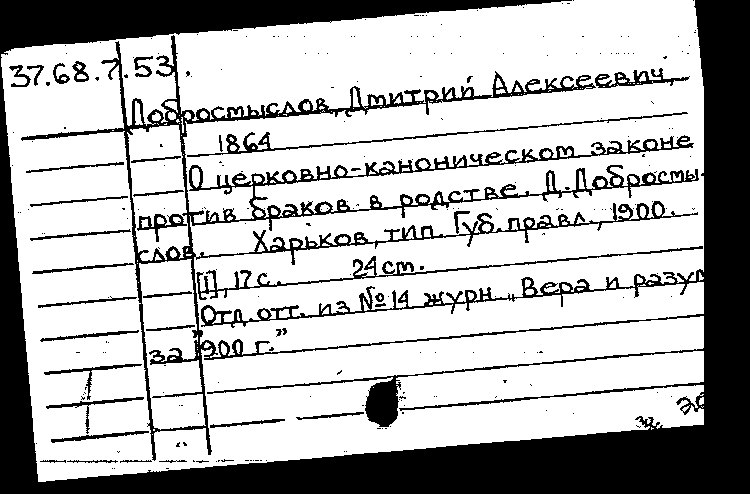 37.68.7.53.
Добросмыслов, Дмитрий Алексеевич,
1864
О церковно-каноническом законе
против браков в родстве. Д. Добросмы-
слов. Харьков, тип. Губ. правл., 1900.
[1], 17 с. 24 cm.
Отд. отт. из № 14 журн „Вера и разум
за 1900 г."